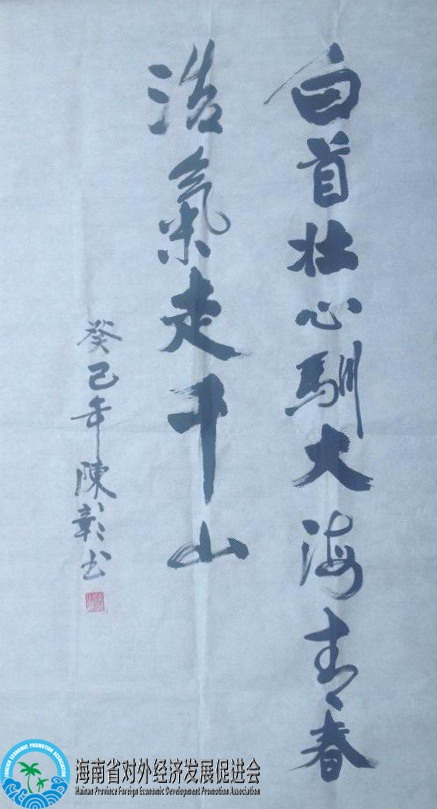 白首壮心馴大海青春
浩氣走千山
癸巳年陳彰书
海南省对外经济发展促进会
Hainan Province Foreign Economic Development Promotion Association